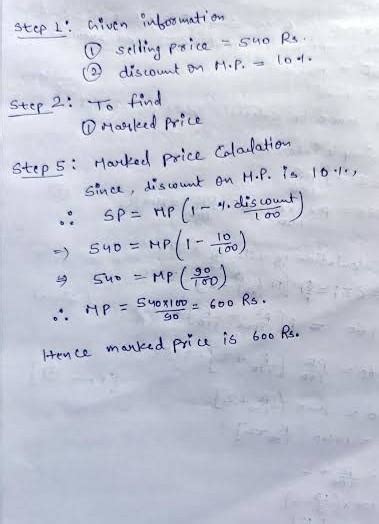 Step 1: Given information
① selling price = 540 Rs.
② discount on M.P. = 10%.
Step 2: To find
① Marked Price
Step 5: Marked Price Calculation
Since, discount on M.P. is 10%,
∴ SP = MP (1 - %.discount/100)
⇒ 540 = MP (1 - 10/100)
⇒ 540 = MP (90/100)
∴ MP = 540x100/90 = 600 Rs.
Hence marked price is 600 Rs.